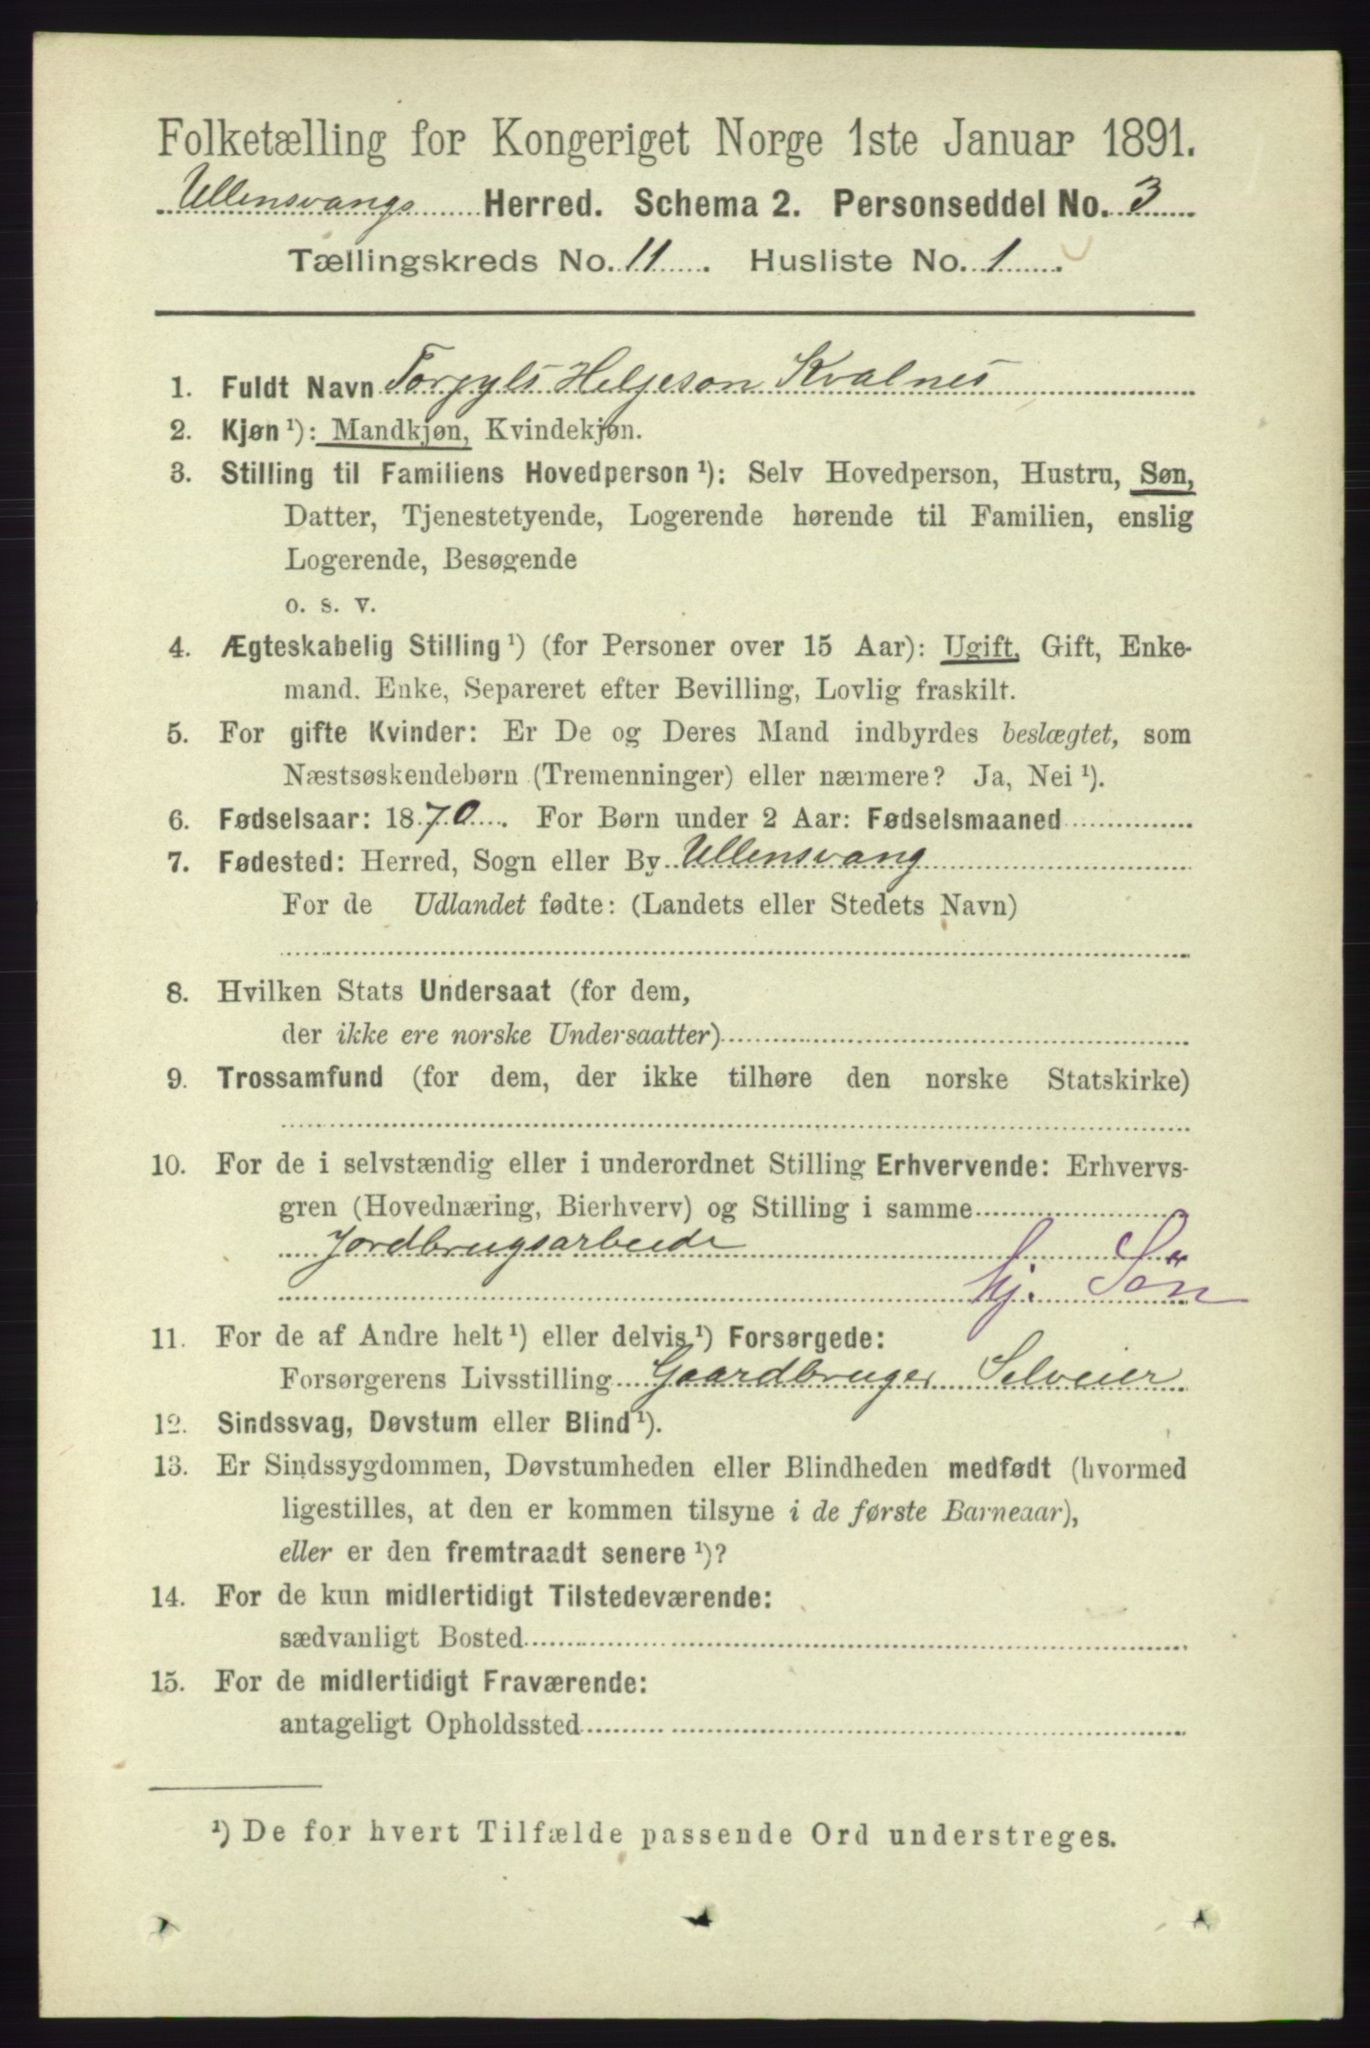 Folketælling for Kongeriget Norge 1ste Januar 1891.
Ullensvangs Herred. Schema 2. Personseddel No. 3
Tællingskreds No. 11. Husliste No. 1.
1. Fuldt Navn Torgyls Helgeson Kvalnes
2. Kjøn ¹): Mandkjøn, Kvindekjøn.
3. Stilling til Familiens Hovedperson ¹): Selv Hovedperson, Hustru, Søn,
Datter, Tjenestetyende, Logerende hørende til Familien, enslig
Logerende, Besøgende
o. s. v.
4. Ægteskabelig Stilling ¹) (for Personer over 15 Aar): Ugift, Gift, Enke-
mand. Enke, Separeret efter Bevilling, Lovlig fraskilt.
5. For gifte Kvinder: Er De og Deres Mand indbyrdes beslægtet, som
Næstsøskendebørn (Tremenninger) eller nærmere? Ja, Nei ¹).
6. Fødselsaar: 1870. For Børn under 2 Aar: Fødselsmaaned
7. Fødested: Herred, Sogn eller By Ullensvang
For de Udlandet fødte: (Landets eller Stedets Navn)
8. Hvilken Stats Undersaat (for dem,
der ikke ere norske Undersaatter)
9. Trossamfund (for dem, der ikke tilhøre den norske Statskirke)
10. For de i selvstændig eller i underordnet Stilling Erhvervende: Erhvervs-
gren (Hovednæring, Bierhverv) og Stilling i samme
Jordbrugsarbeide
hj. Sön
11. For de af Andre helt ¹) eller delvis ¹) Forsørgede:
Forsørgerens Livsstilling Gaardbruger Selveier
12. Sindssvag, Døvstum eller Blind ¹).
13. Er Sindssygdommen, Døvstumheden eller Blindheden medfødt (hvormed
ligestilles, at den er kommen tilsyne i de første Barneaar),
eller er den fremtraadt senere ¹)?
14. For de kun midlertidigt Tilstedeværende:
sædvanligt Bosted
15. For de midlertidigt Fraværende:
antageligt Opholdssted
¹) De for hvert Tilfælde passende Ord understreges.